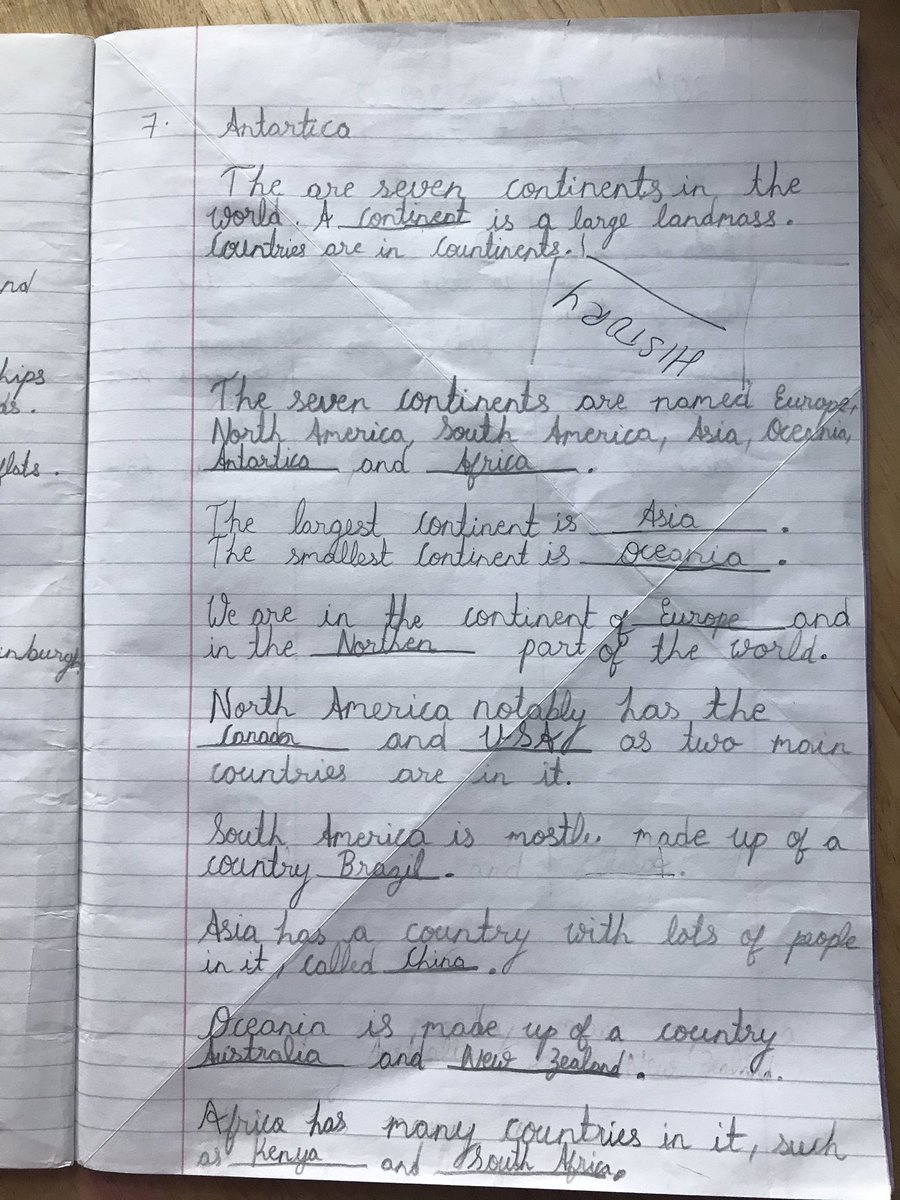 nd
hips
ds.
flats.
inburgh
7. Antartica
The are seven continents in the
world. A continent is a large landmass.
Countries are in countinents.
HISTORY
The seven continents are named Europe,
North America, South America, Asia, Oceania,
Antartica and Africa.
The largest continent is Asia.
The smallest continent is Oceania.
We are in the continent of Europe and
in the Northen part of the world.
North America notably has the
Canador and USA as two main
countries are in it.
South America is mostly made up of a
country Brazil. and
Asia has a country with lots of people
in it, called China.
Oceania is made up of a country
Australia and New Zealand.
Africa has many countries in it, such
as Kenya and South Africa.